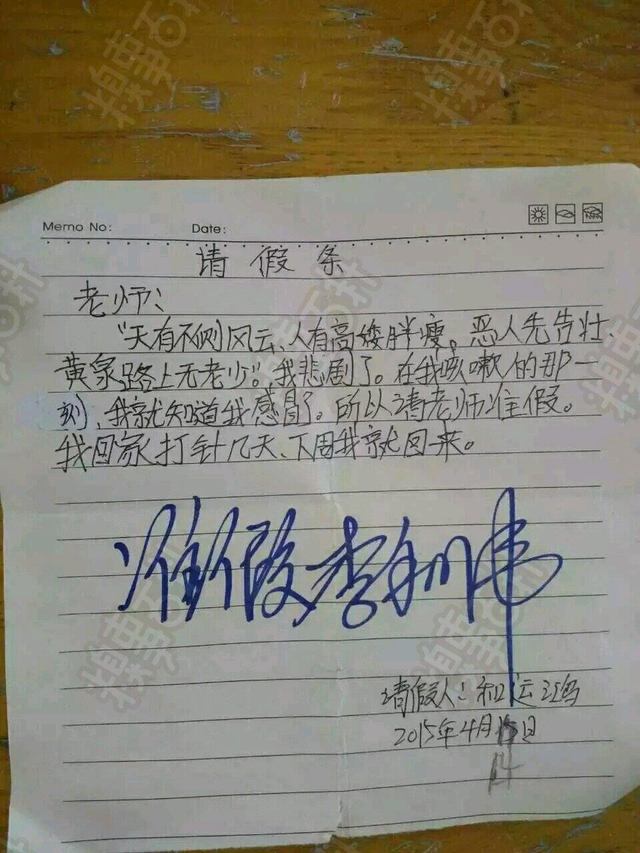 Memo No: Date:
请假条
老师:
"天有不测风云、人有高矮胖瘦。恶人先告壮、
黄泉路上无老少"。我悲剧了。在我咳嗽的那一
刻,我就知道我感冒了。所以请老师准假。
我回家打针几天、下周我就回来。
准假 李利伟
请假人:和运鸿
2015年4月日
14
糗事百科